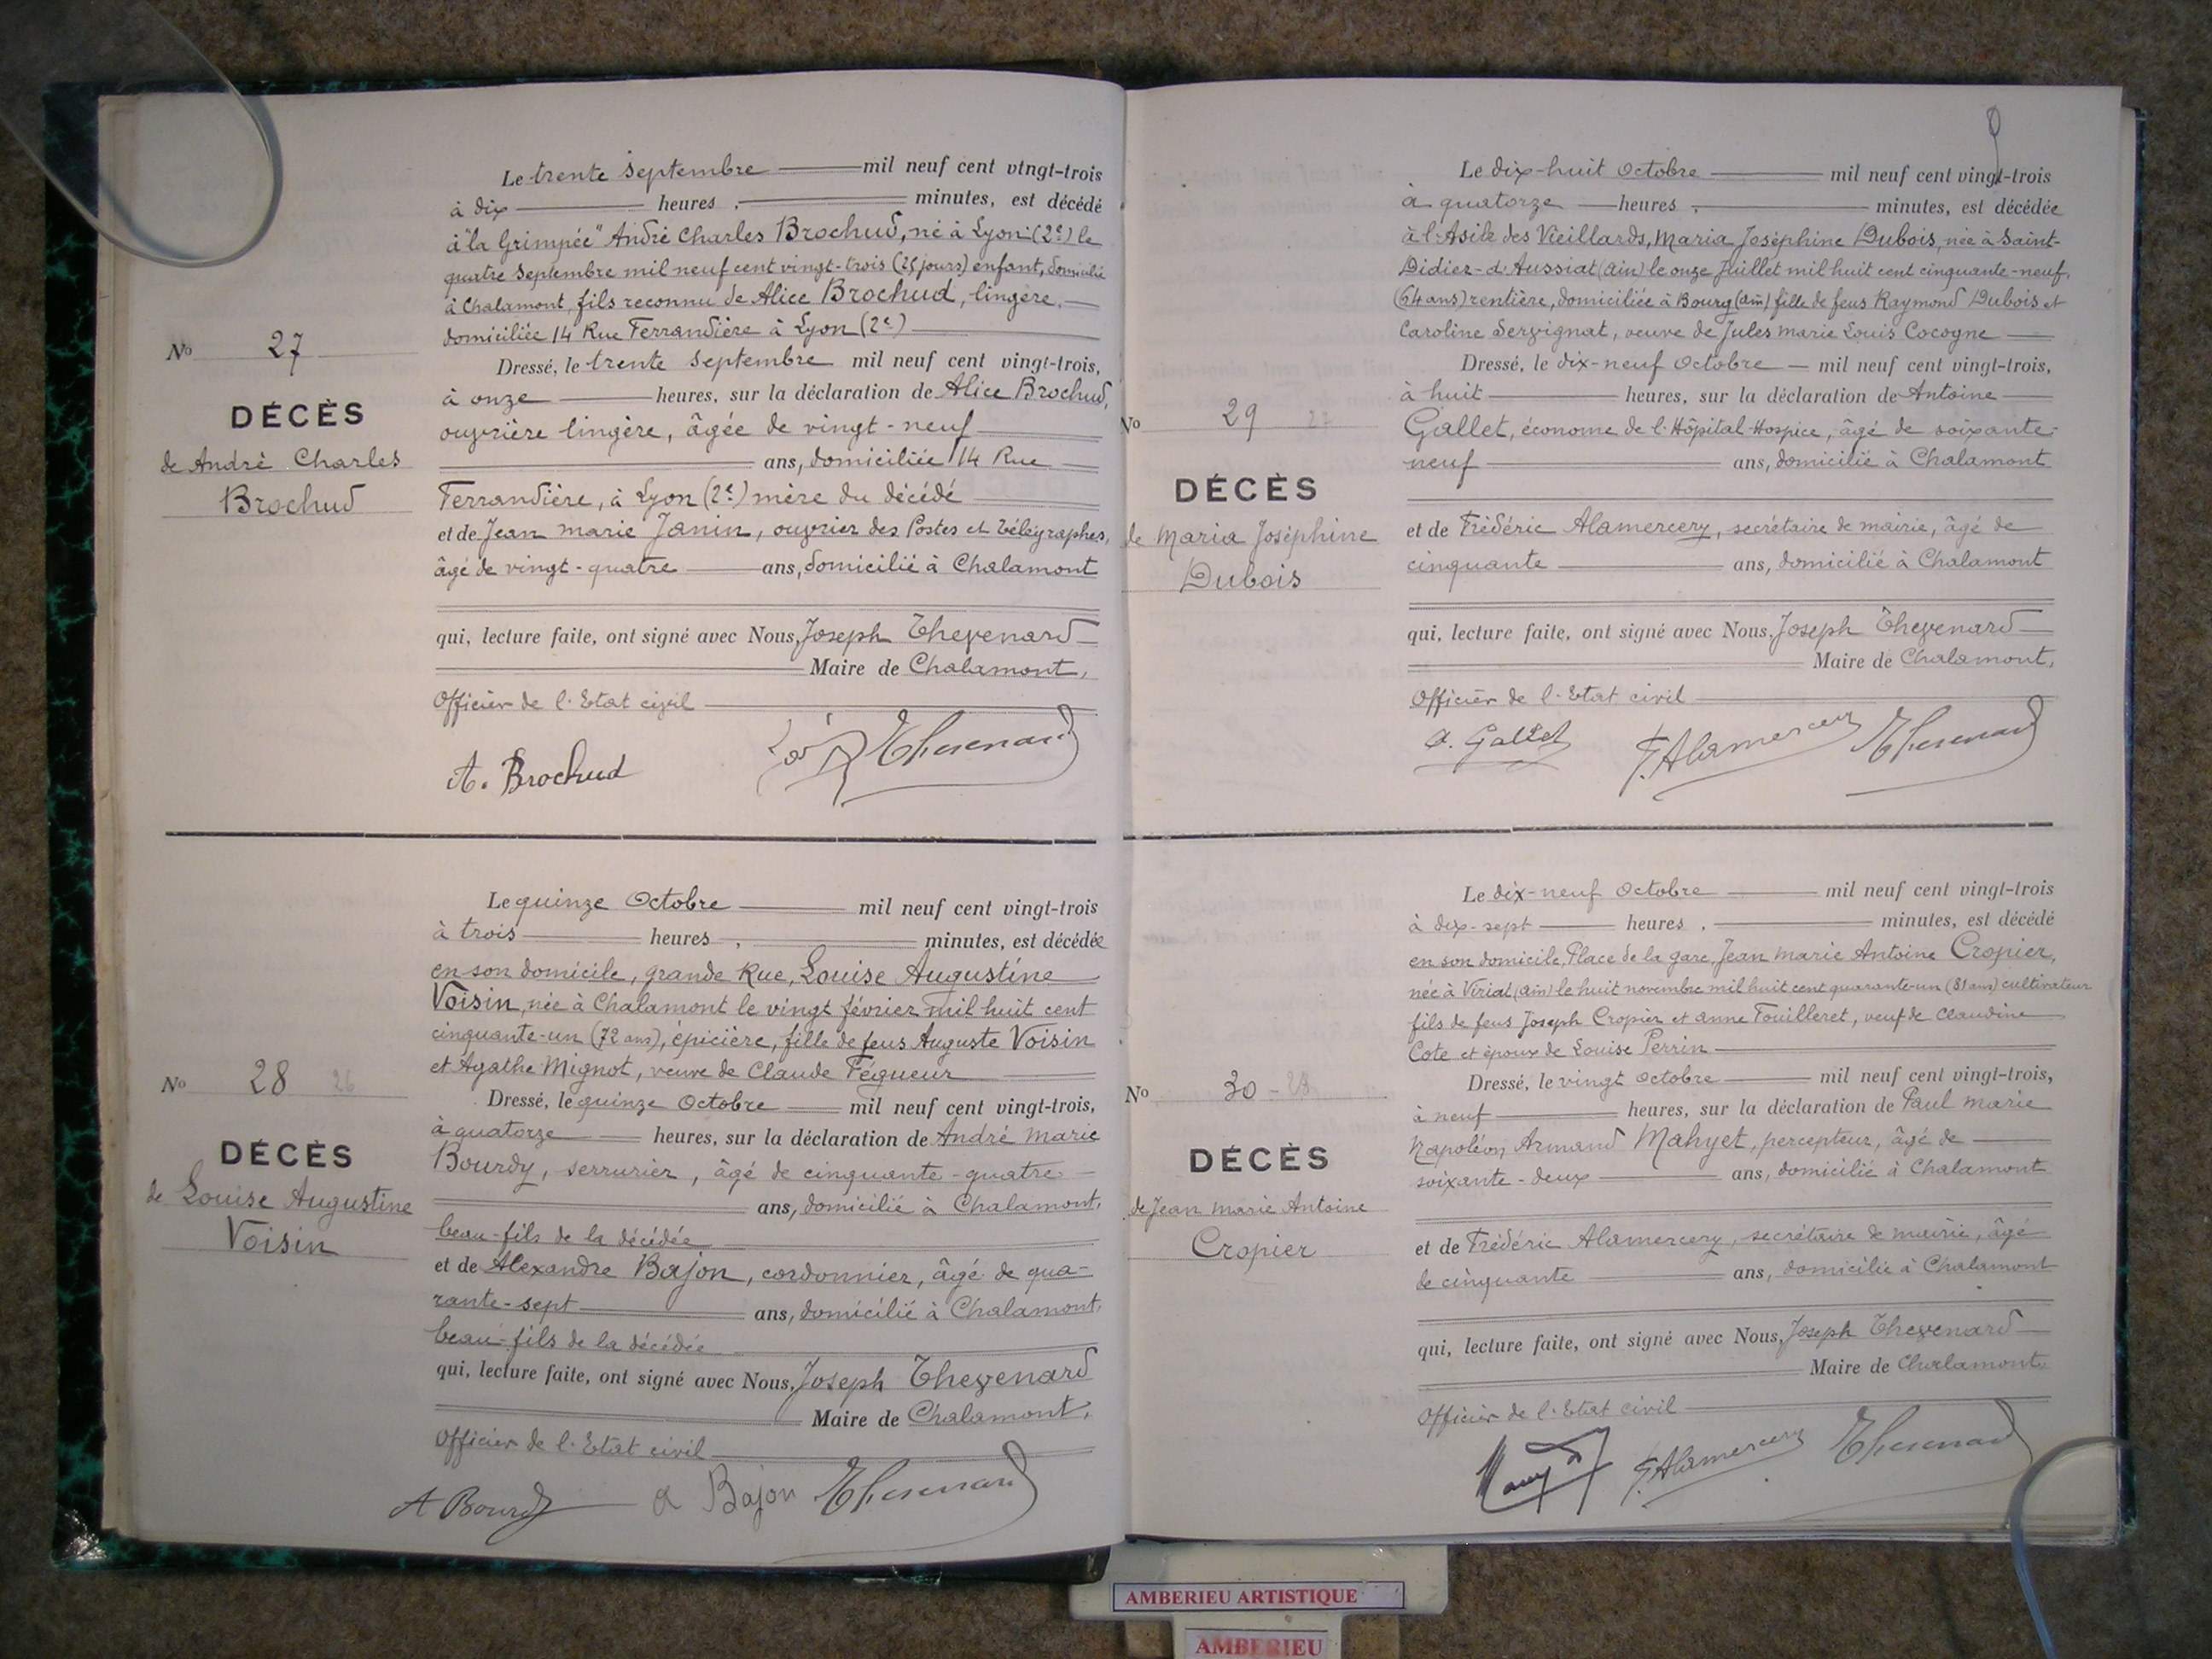 Le trente Septembre mil neuf cent vingt-trois
à dix heures, minutes, est décédé
à "la Grimpée" André Charles Brochud, né à Lyon (2e) le
quatre Septembre mil neuf cent vingt-trois (25 jours) enfant, domicilié
à Chalamont, fils reconnu de Alice Brochud, lingère,
domiciliée 14 Rue Ferrandière à Lyon (2e)
No 27
DÉCÈS
de André Charles
Brochud
Dressé, le trente Septembre mil neuf cent vingt-trois,
à onze heures, sur la déclaration de Alice Brochud,
ouvrière lingère, âgée de vingt-neuf
ans, domiciliée 14 Rue
Ferrandière, à Lyon (2e) mère du décédé
et de Jean marie Janin, ouvrier des Postes et télégraphes,
âgé de vingt-quatre ans, domicilié à Chalamont
qui, lecture faite, ont signé avec Nous, Joseph Thevenard
Maire de Chalamont,
Officier de l'Etat civil
A. Brochud Thevenard
Le quinze Octobre mil neuf cent vingt-trois
à trois heures, minutes, est décédée
en son domicile, grande Rue, Louise Augustine
Voisin, née à Chalamont le vingt février mil huit cent
cinquante-un (72 ans), épicière, fille de feus Auguste Voisin
et Agathe Mignot, veuve de Claude Féqueur
No 28 26
DÉCÈS
de Louise Augustine
Voisin
Dressé, le quinze Octobre mil neuf cent vingt-trois,
à quatorze heures, sur la déclaration de André Marie
Bourdy, serrurier, âgé de cinquante-quatre
ans, domicilié à Chalamont,
beau-fils de la décédée
et de Alexandre Bajon, cordonnier, âgé de qua-
rante-sept ans, domicilié à Chalamont,
beau-fils de la décédée
qui, lecture faite, ont signé avec Nous, Joseph Thevenard
Maire de Chalamont,
Officier de l'Etat civil
A Bourdy a Bajon Thevenard
Le dix-huit Octobre mil neuf cent vingt-trois
à quatorze heures, minutes, est décédée
à l'Asile des Vieillards, Maria Joséphine Dubois, née à Saint-
Didier-d'Aussiat (Ain) le onze Juillet mil huit cent cinquante-neuf,
(64 ans) rentière, domiciliée à Bourg (Ain) fille de feus Raymond Dubois et
Caroline Servignat, veuve de Jules marie Louis Cocogne
No 29
DÉCÈS
de Maria Joséphine
Dubois
Dressé, le dix-neuf Octobre mil neuf cent vingt-trois,
à huit heures, sur la déclaration de Antoine
Gallet, économe de l'Hôpital-Hospice, âgé de soixante-
neuf ans, domicilié à Chalamont
et de Frédéric Alamercery, secrétaire de mairie, âgé de
cinquante ans, domicilié à Chalamont
qui, lecture faite, ont signé avec Nous, Joseph Thevenard
Maire de Chalamont,
Officier de l'Etat civil
A. Gallet F. Alamercery Thevenard
Le dix-neuf Octobre mil neuf cent vingt-trois
à dix-sept heures, minutes, est décédé
en son domicile, Place de la gare, Jean marie Antoine Cropier,
née à Viriat (Ain) le huit novembre mil huit cent quarante-un (81 ans) cultivateur
fils de feus Joseph Cropier et Anne Fouilleret, veuf de Claudine
Cote et époux de Louise Perrin
No 30 - 28
DÉCÈS
de Jean marie Antoine
Cropier
Dressé, le vingt Octobre mil neuf cent vingt-trois,
à neuf heures, sur la déclaration de Paul Marie
Napoléon Armand Mahyet, percepteur, âgé de
soixante-deux ans, domicilié à Chalamont
et de Frédéric Alamercery, secrétaire de mairie, âgé
de cinquante ans, domicilié à Chalamont
qui, lecture faite, ont signé avec Nous, Joseph Thevenard
Maire de Chalamont
Officier de l'Etat civil
F. Alamercery Thevenard
AMBERIEU ARTISTIQUE
AMBERIEU